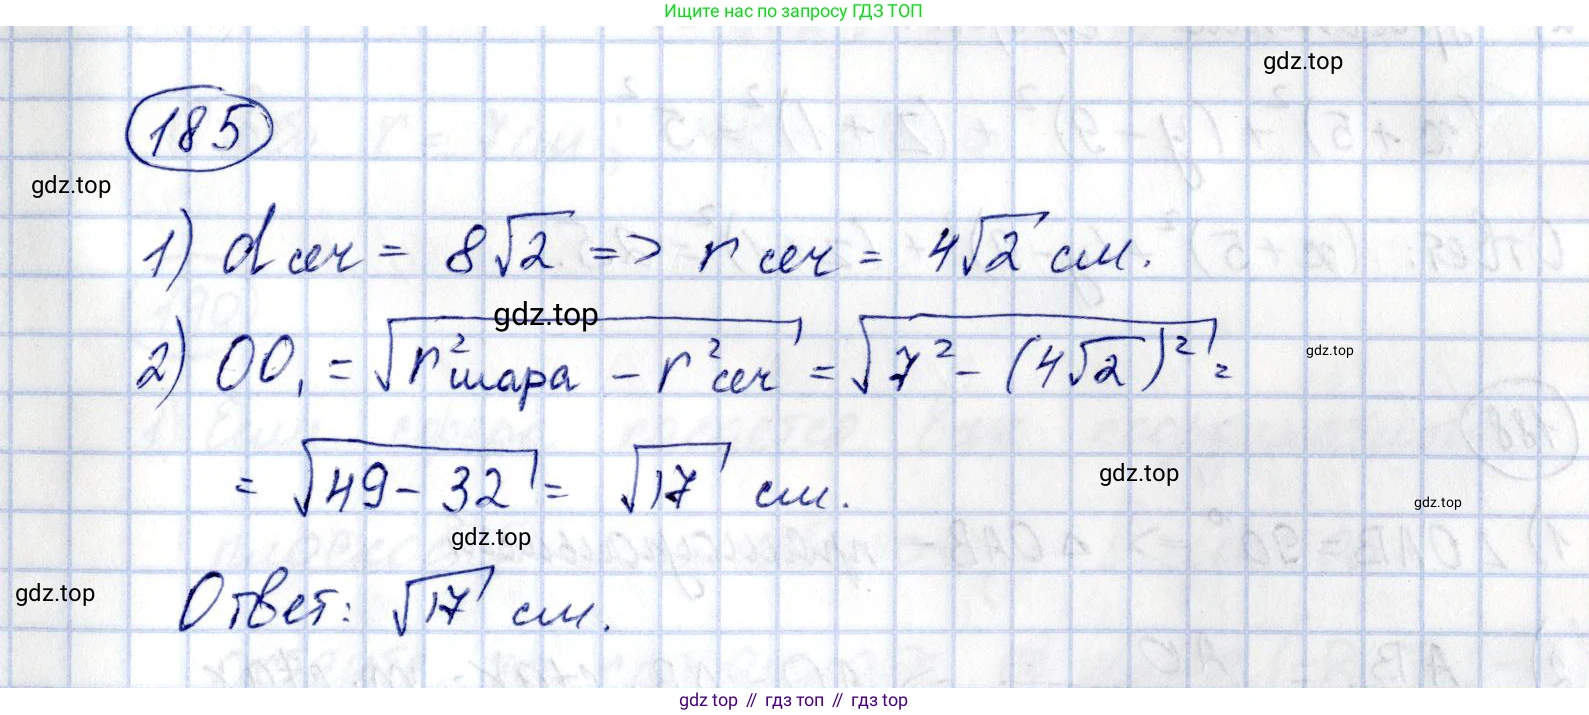 Ищите нас по запросу ГДЗ ТОП
gdz.top
185
gdz.top
1) dсеч = 8√2 => rсеч = 4√2 см.
gdz.top
2) OO₁ = √(r²шара − r²сеч) = √(7² − (4√2)²) =
gdz.top
= √(49 − 32) = √17 см.
gdz.top
gdz.top
gdz.top
gdz.top
Ответ: √17 см.
gdz.top // гдз топ // гдз top